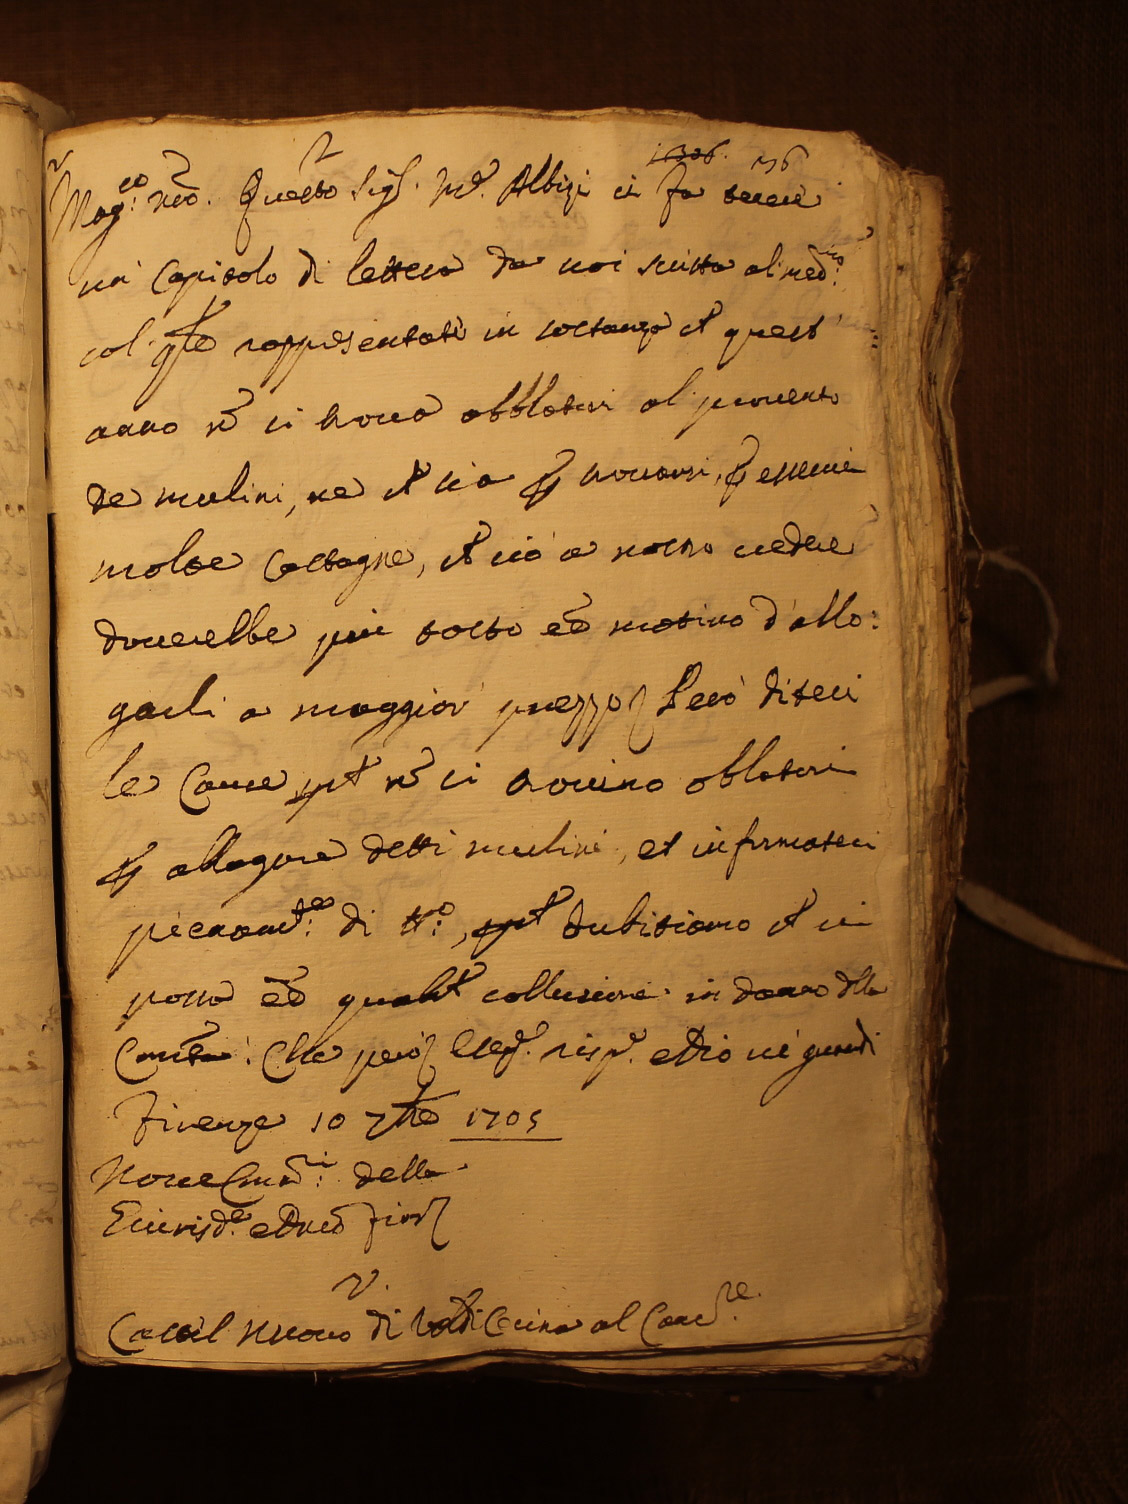 1306. 136
Mag:co nro. Questo Sigr. Md. Albizi ci fa tenere
un Capitolo di lettera da voi scritta al med:mo
col qle rappresentate in sostanza ch quest'
anno nō si trova obblatori al provento
de mulini, ne ch sia p trovarsi, p esservi
molte Castagne, ch ciò a nostro vedere
doverebbe più tosto eē motivo d'allo:
garli a maggior prezzo Però diteci
le Cause pch nō si trovino oblatori
p allogare detti mulini, et informateci
pienamte: di tto:, pch dubitiamo ch vi
possa eē qualch collusione in danno dlla
Comtà: Che però etc. risp. e Dio vi guardi
Firenze 10 7bre 1705
Nove Conri: della
Giurisde. e Dnio Fior
Castel nuovo di Val di Cecina al Cancre.